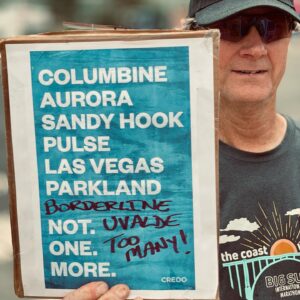 COLUMBINE
AURORA
SANDY HOOK
PULSE
LAS VEGAS
PARKLAND
BORDERLINE
NOT. UVALDE
ONE. TOO
MORE. MANY!
CREDO
the coast
BIG SU
INTERNATION